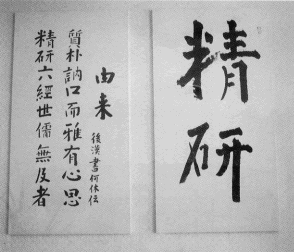 精研
由来
後漢書何休伝
質朴訥口而雅有心思
精研六經世儒無及者